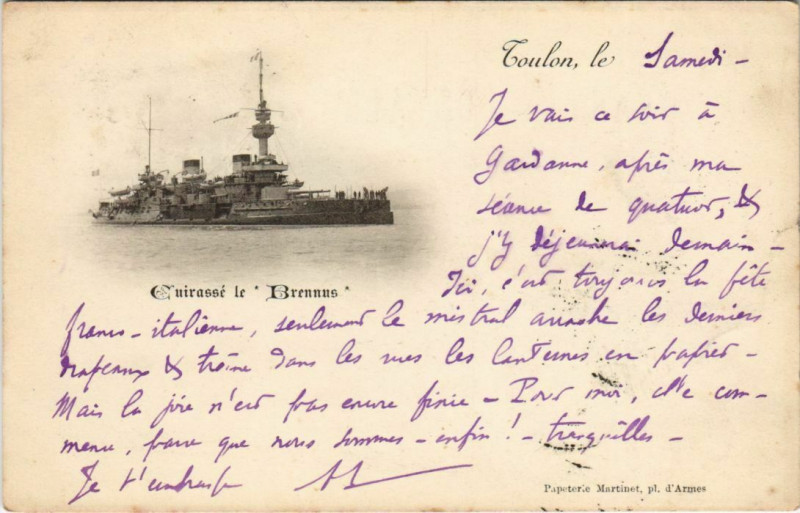 Toulon, le Samedi -
Je vais ce soir à
Gardanne, après ma
séance de quatuor, &
j'y déjeunerai demain -
Ici, c'est toujours la fête
franco-italienne, seulement le mistral arrache les derniers
drapeaux & traîne dans les rues les lanternes en papier -
Mais la joie n'est pas encore finie - Pour moi, elle com-
mence, parce que nous sommes - enfin ! - tranquilles -
Je t'embrasse
Cuirassé le "Brennus"
Papeterie Martinet, pl. d'Armes